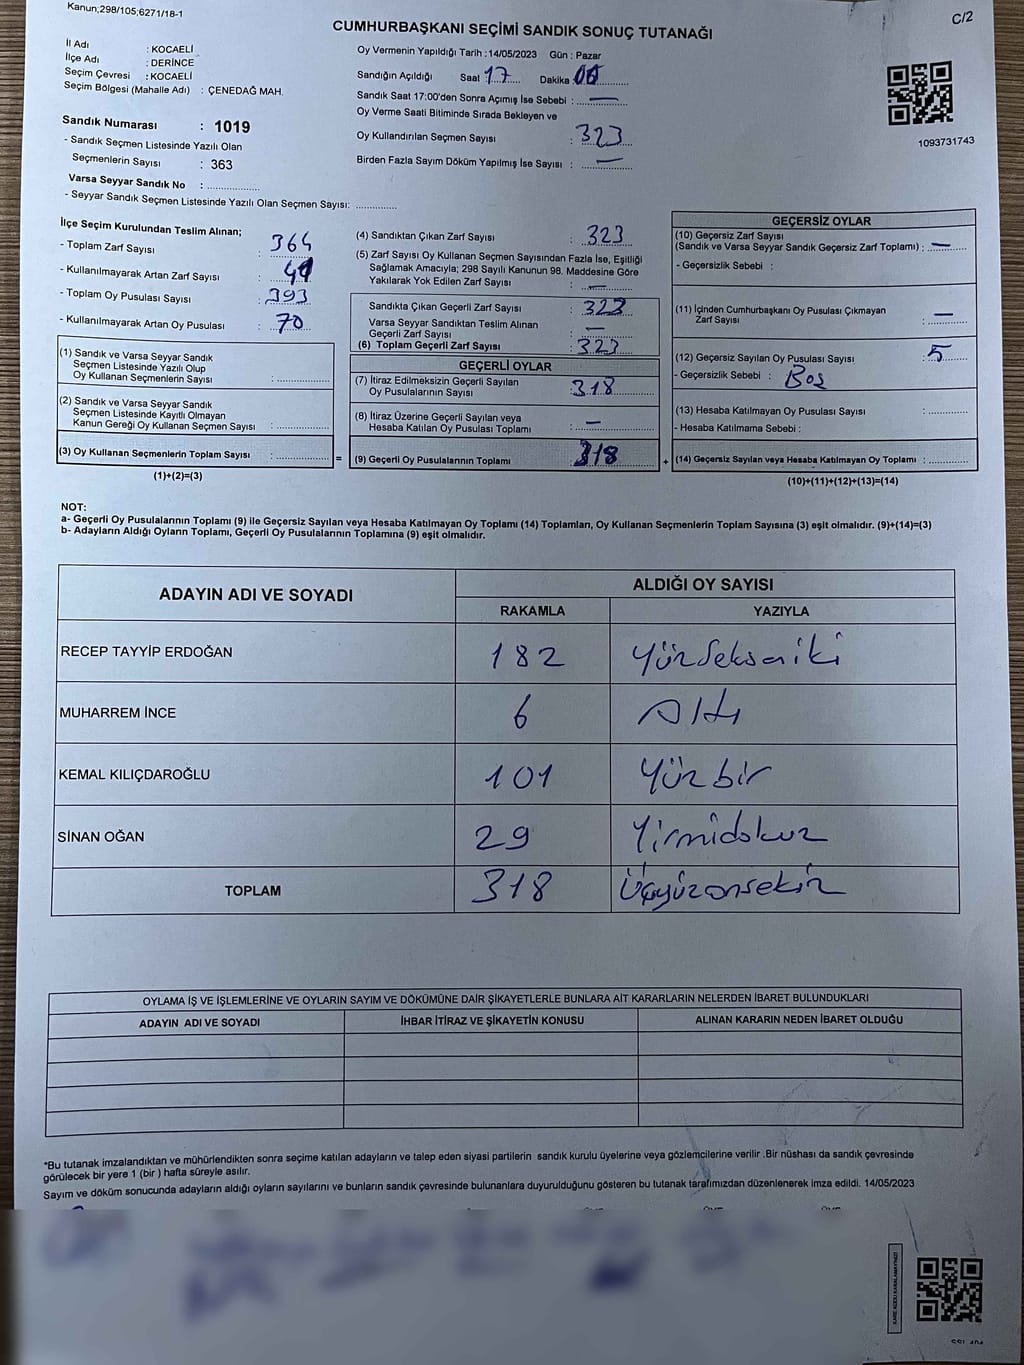 Kanun;298/105;6271/18-1
C/2
CUMHURBAŞKANI SEÇİMİ SANDIK SONUÇ TUTANAĞI
İl Adı : KOCAELİ
İlçe Adı : DERİNCE
Seçim Çevresi : KOCAELİ
Seçim Bölgesi (Mahalle Adı) : ÇENEDAĞ MAH.
Sandık Numarası : 1019
- Sandık Seçmen Listesinde Yazılı Olan
Seçmenlerin Sayısı : 363
Varsa Seyyar Sandık No : ................
- Seyyar Sandık Seçmen Listesinde Yazılı Olan Seçmen Sayısı: .............
Oy Vermenin Yapıldığı Tarih : 14/05/2023 Gün : Pazar
Sandığın Açıldığı Saat 17 Dakika 00
Sandık Saat 17:00'den Sonra Açımış İse Sebebi : —
Oy Verme Saati Bitiminde Sırada Bekleyen ve
Oy Kullandırılan Seçmen Sayısı : 323
Birden Fazla Sayım Döküm Yapılmış İse Sayısı : —
1093731743
İlçe Seçim Kurulundan Teslim Alınan;
- Toplam Zarf Sayısı : 364
- Kullanılmayarak Artan Zarf Sayısı : 41
- Toplam Oy Pusulası Sayısı : 393
- Kullanılmayarak Artan Oy Pusulası : 70
(1) Sandık ve Varsa Seyyar Sandık
Seçmen Listesinde Yazılı Olup
Oy Kullanan Seçmenlerin Sayısı : ................
(2) Sandık ve Varsa Seyyar Sandık
Seçmen Listesinde Kayıtlı Olmayan
Kanun Gereği Oy Kullanan Seçmen Sayısı : ................
(3) Oy Kullanan Seçmenlerin Toplam Sayısı : ................
(1)+(2)=(3)
=
(4) Sandıktan Çıkan Zarf Sayısı : 323
(5) Zarf Sayısı Oy Kullanan Seçmen Sayısından Fazla İse, Eşitliği
Sağlamak Amacıyla; 298 Sayılı Kanunun 98. Maddesine Göre
Yakılarak Yok Edilen Zarf Sayısı : —
Sandıkta Çıkan Geçerli Zarf Sayısı : 323
Varsa Seyyar Sandıktan Teslim Alınan
Geçerli Zarf Sayısı : —
(6) Toplam Geçerli Zarf Sayısı : 323
GEÇERLİ OYLAR
(7) İtiraz Edilmeksizin Geçerli Sayılan
Oy Pusulalarının Sayısı : 318
(8) İtiraz Üzerine Geçerli Sayılan veya
Hesaba Katılan Oy Pusulası Toplamı : —
(9) Geçerli Oy Pusulalarının Toplamı 318
+
GEÇERSİZ OYLAR
(10) Geçersiz Zarf Sayısı
(Sandık ve Varsa Seyyar Sandık Geçersiz Zarf Toplamı) : —
- Geçersizlik Sebebi :
(11) İçinden Cumhurbaşkanı Oy Pusulası Çıkmayan
Zarf Sayısı : —
(12) Geçersiz Sayılan Oy Pusulası Sayısı : 5
- Geçersizlik Sebebi : Boş
(13) Hesaba Katılmayan Oy Pusulası Sayısı : ............
- Hesaba Katılmama Sebebi :
(14) Geçersiz Sayılan veya Hesaba Katılmayan Oy Toplamı : ............
(10)+(11)+(12)+(13)=(14)
NOT:
a- Geçerli Oy Pusulalarının Toplamı (9) ile Geçersiz Sayılan veya Hesaba Katılmayan Oy Toplamı (14) Toplamları, Oy Kullanan Seçmenlerin Toplam Sayısına (3) eşit olmalıdır. (9)+(14)=(3)
b- Adayların Aldığı Oyların Toplamı, Geçerli Oy Pusulalarının Toplamına (9) eşit olmalıdır.
ADAYIN ADI VE SOYADI
ALDIĞI OY SAYISI
RAKAMLA YAZIYLA
RECEP TAYYİP ERDOĞAN 182 Yüzsekseniki
MUHARREM İNCE 6 Altı
KEMAL KILIÇDAROĞLU 101 Yüzbir
SİNAN OĞAN 29 Yirmidokuz
TOPLAM 318 Üçyüzonsekiz
OYLAMA İŞ VE İŞLEMLERİNE VE OYLARIN SAYIM VE DÖKÜMÜNE DAİR ŞİKAYETLERLE BUNLARA AİT KARARLARIN NELERDEN İBARET BULUNDUKLARI
ADAYIN ADI VE SOYADI İHBAR İTİRAZ VE ŞİKAYETİN KONUSU ALINAN KARARIN NEDEN İBARET OLDUĞU
*Bu tutanak imzalandıktan ve mühürlendikten sonra seçime katılan adayların ve talep eden siyasi partilerin sandık kurulu üyelerine veya gözlemcilerine verilir .Bir nüshası da sandık çevresinde
görülecek bir yere 1 (bir ) hafta süreyle asılır.
Sayım ve döküm sonucunda adayların aldığı oyların sayılarını ve bunların sandık çevresinde bulunanlara duyurulduğunu gösteren bu tutanak tarafımızdan düzenlenerek imza edildi. 14/05/2023